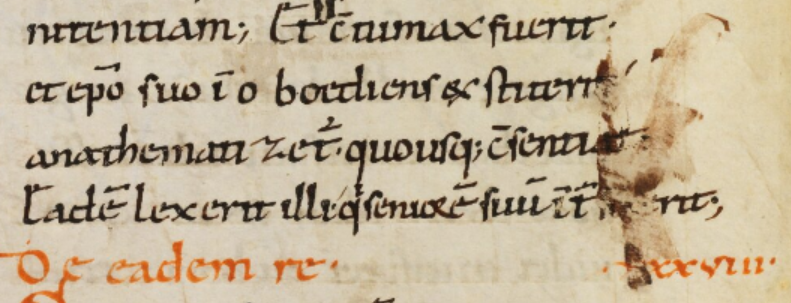 nitentiam; Et c̄tumax fuerit·
et ep̄o suo ī o boediens &stiterit
anathematizet̄· quousq; c̄sentiat
Eadē lex erit illi q̇ seniorē suū
De eadem re· xxviii·